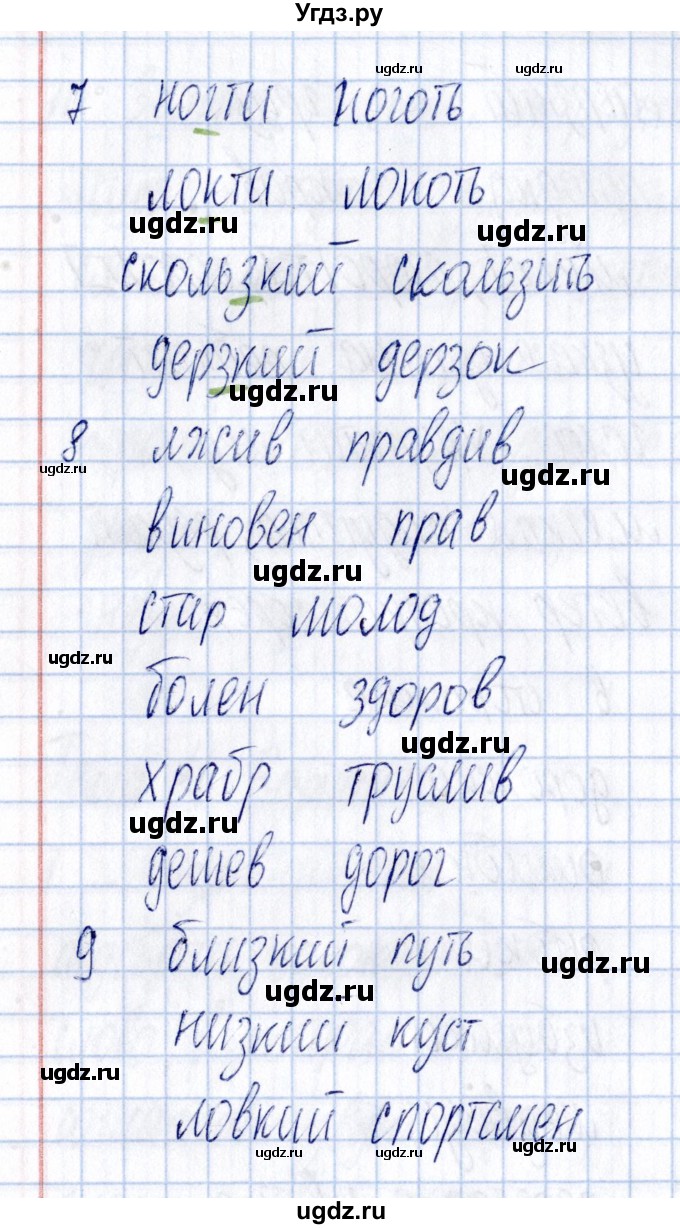 Угдз.ру
ugdz.ru ugdz.ru
7 ногти ноготь
локти локоть
ugdz.ru ugdz.ru
скользкий скользить
дерзкий дерзок
ugdz.ru
8 лжив правдив
ugdz.ru ugdz.ru
виновен прав
ugdz.ru
стар молод
ugdz.ru
болен здоров
ugdz.ru
храбр труслив
ugdz.ru
дешев дорог
9 близкий путь
ugdz.ru ugdz.ru
низкий куст
ugdz.ru
ловкий спортсмен
ugdz.ru ugdz.ru ugdz.ru
ugdz.ru